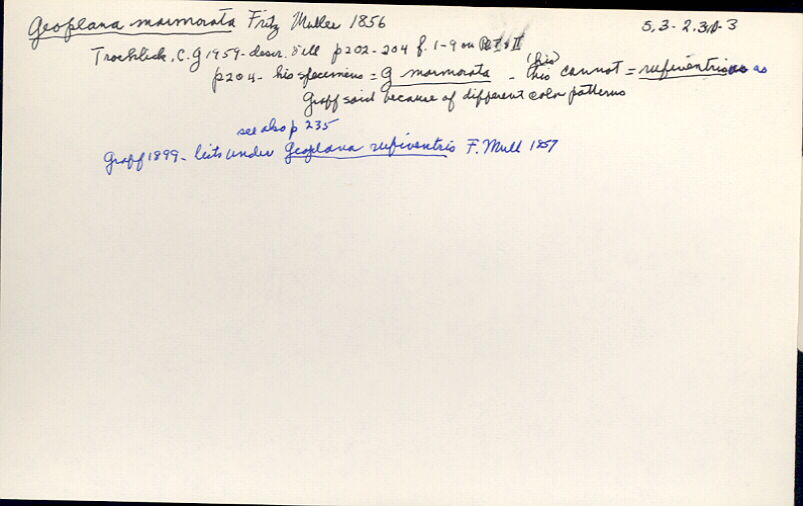 Geoplana marmorata Fritz Muller 1856 5.3-2.3A-3
Froehlich, C.G 1959- descr. & ill p202-204 f. 1-9 on Pl I & II
p204- his specimens = G marmorata - this (his) cannot = rufiventris as
Graff said because of different color patterns
see also p 235
Graff 1899- lists under Geoplana rufiventris F. Mull 1857